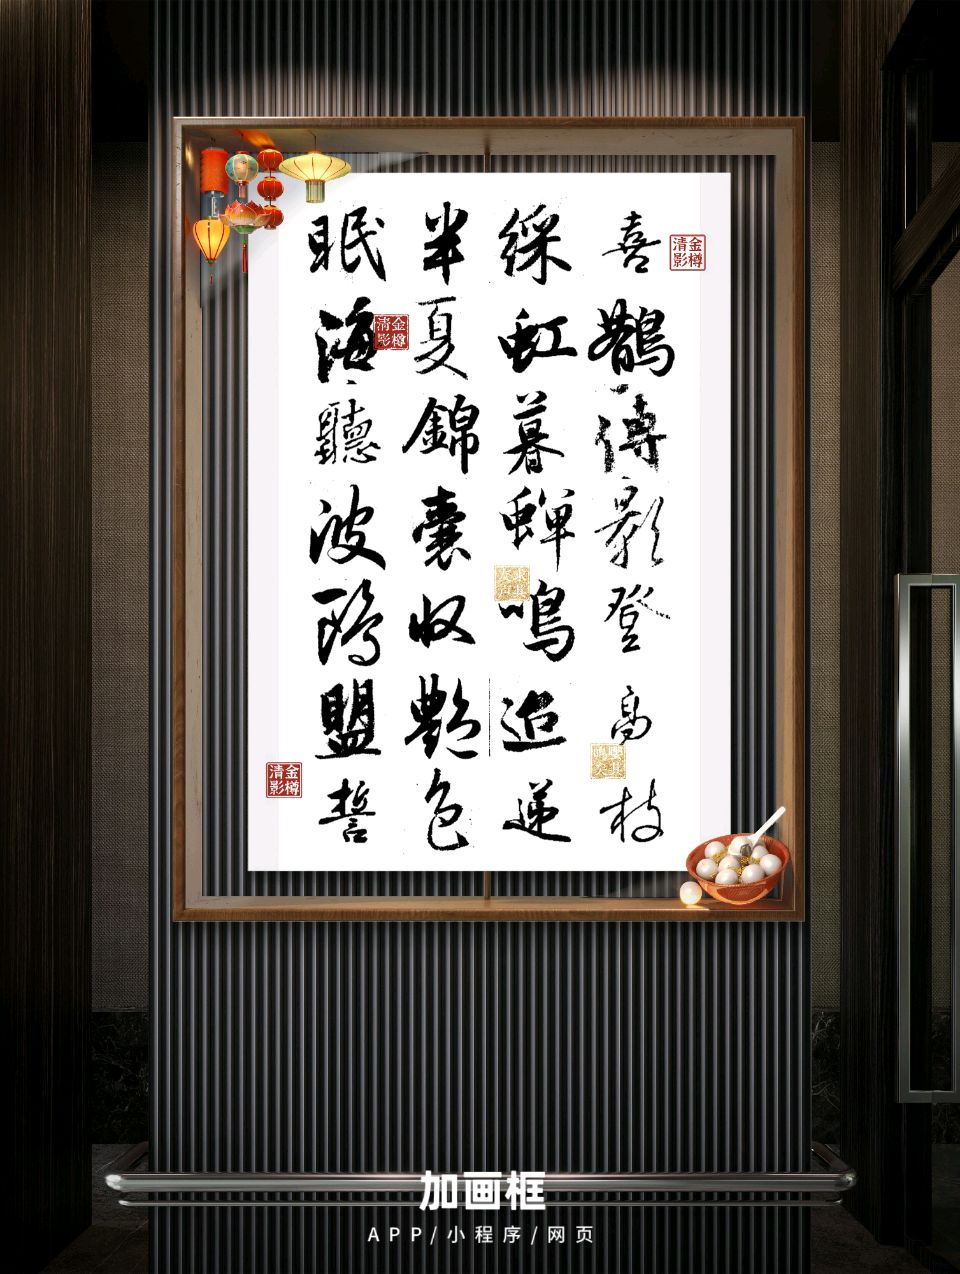 喜鵲傳影登高枝
綵虹暮蟬鳴迢遞
半夏錦囊收艷色
眠海聽波鷗盟誓
金樽清影
金樽清影
金樽清影
加画框
APP/小程序/网页